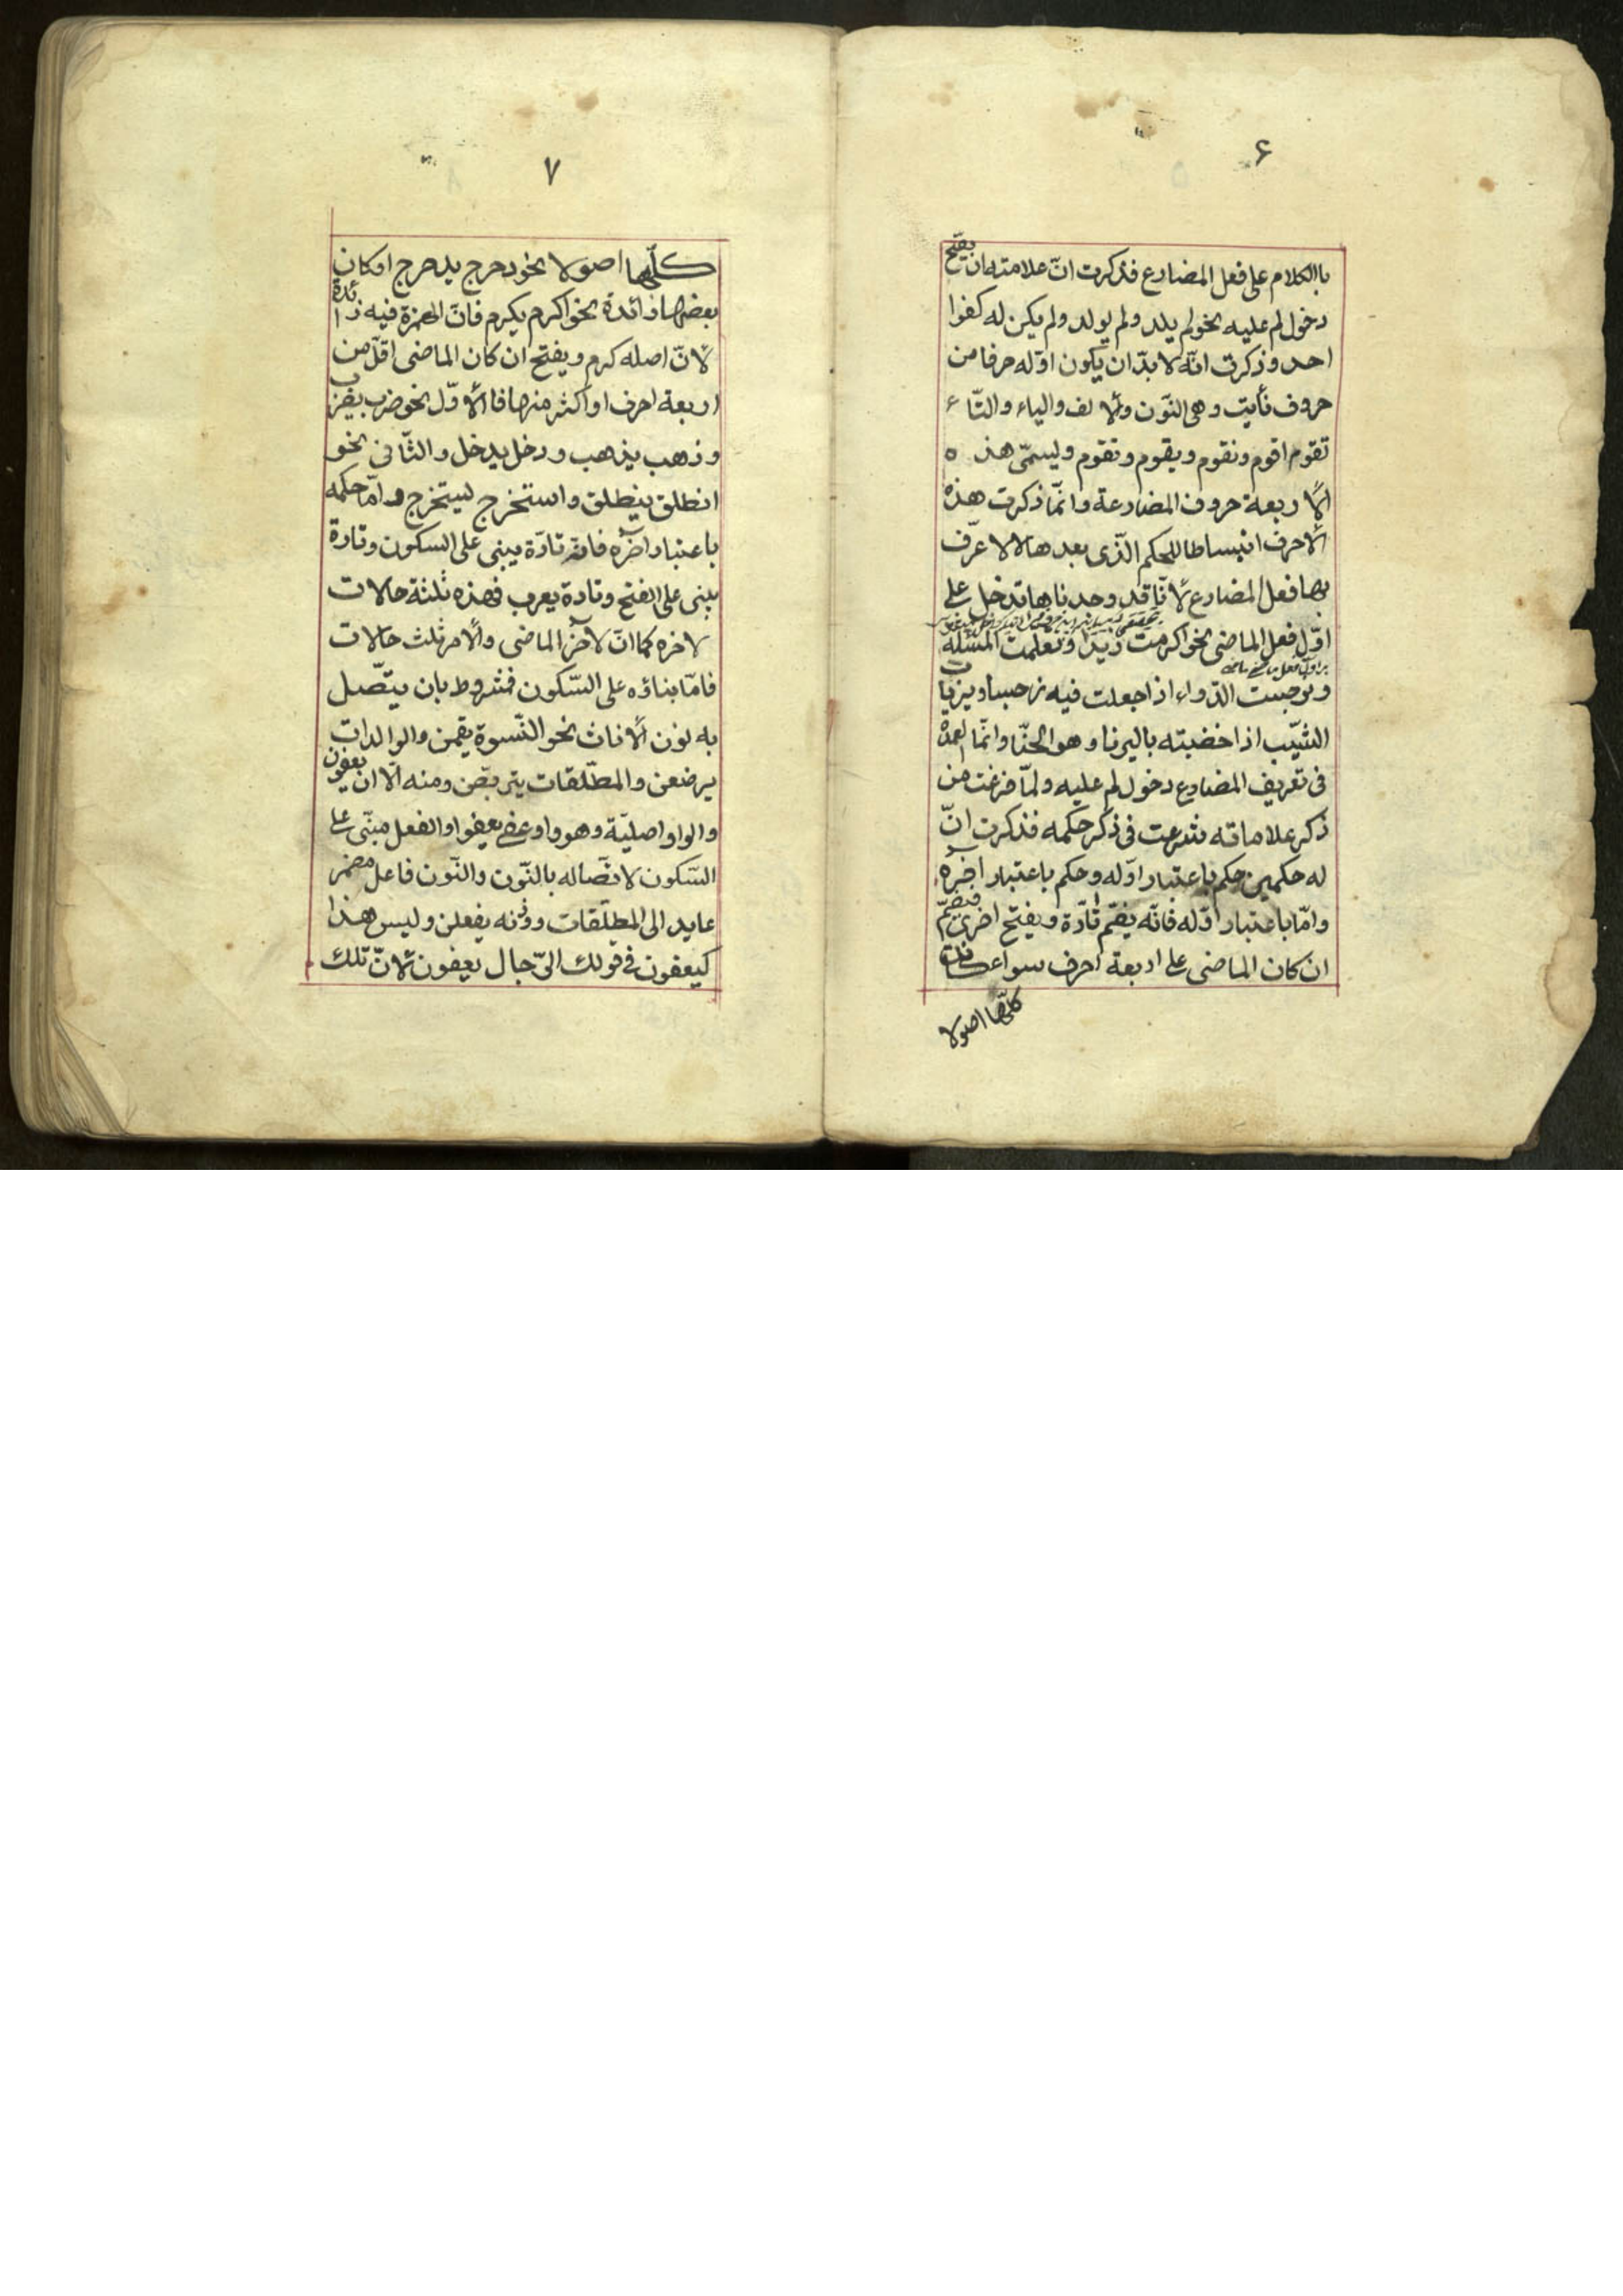 ۶
باالكلام على فعل المضارع فذكرت انّ علامته ان يفتح
دخول لم عليه نحو لم يلد ولم يولد ولم يكن له كفوا
احد وذكرت انّه لا بدّ ان يكون اوّله حرفا من
حروف نأيت وهى النّون والالف والياء والتّاء
نقوم اقوم ونقوم ويقوم وتقوم وليسمّى هذه
الاربعة حروف المضارعة وانّما ذكرت هذه
الاحرف انبساطا للحكم الّذى بعدها لا لاعرّف
بها فعل المضارع لانّا قد وجدناها تدخل على
اوّل فعل الماضى نحو اكرمت زيدا وتعلمت المسئلة
ونرجست الدّواء اذا جعلت فيه نرجسا ويرنات
الشّيب اذا خضبته باليرنا وهو الحنّا وانّما العمدة
فى تعريف المضارع دخول لم عليه ولمّا فرغت من
ذكر علاماته شرعت فى ذكر حكمه فذكرت انّ
له حكمين حكم باعتبار اوّله وحكم باعتبار اخره
وامّا باعتبار اوّله فانّه يضّم تارّة ويفتح اخرى فيضمّ
ان كان الماضى على اربعة احرف سواء كانت
كلّها اصولا
۷
كلّها اصولا نحو دحرج يدحرج او كان
بعضها زائدة نحو اكرم يكرم فانّ الهمزة فيه زائدة
لانّ اصله كرم ويفتح ان كان الماضى اقلّ من
اربعة احرف او اكثر منها فالاوّل نحو ضرب يضرب
وذهب يذهب ودخل يدخل والثّانى نحو
انطلق ينطلق واستخرج ليستخرج وامّا حكمه
باعتبار اخره فانه تارّة يبنى على السكون وتارة
يبنى على الفتح وتارة يعرب فهذه ثلثة حالات
لاخره كما انّ لاخر الماضى والامر ثلث حالات
فامّا بناؤه على السّكون فمشروط بان يتّصل
به نون الاناث نحو النّسوة يقمن والوالدات
يرضعن والمطلّقات يتربّصن ومنه الّا ان يعفون
والواو اصليّة وهو واو عفى يعفوا والفعل مبنّى على
السّكون لاتصّاله بالنّون والنّون فاعل مضمر
عايد الى المطلّقات ووزنه يفعلن وليس هذا
كيعفون فى قولك الرّجال يعفون لانّ تلك